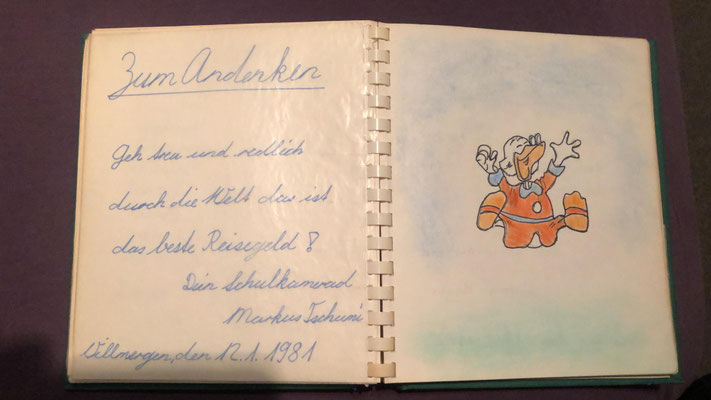 Zum Andenken
Geh treu und redlich
durch die Welt das ist
das beste Reisegeld!
Dein Schulkamerad
Markus Tschumi
Villmergen, den 12.1.1981